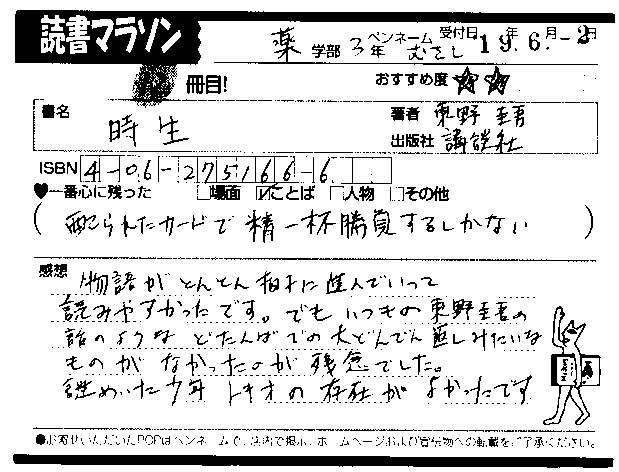 読書マラソン
薬 学部 3年 ペンネーム むさし 受付日 19年6月-2日
冊目! おすすめ度 ☆☆
書名 時生 著者 東野圭吾
出版社 講談社
ISBN 4-06-275166-6
♥一番心に残った □場面 ☑ことば □人物 □その他
(配られたカードで精一杯勝負するしかない)
感想 物語がとんとん拍子に進んでいって
読みやすかったです。でもいつもの東野圭吾の
話のような どたんばでの大どんでん返しみたいな
ものがなかったのが残念でした。
謎めいた少年トキオの存在がよかったです
●お寄せいただいたPOPはペンネームで、店内で掲示、ホームページおよび宣伝物への転載をご了承ください。